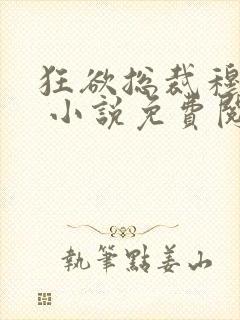 狂欲总裁穆
小說免費閱
執筆點姜山